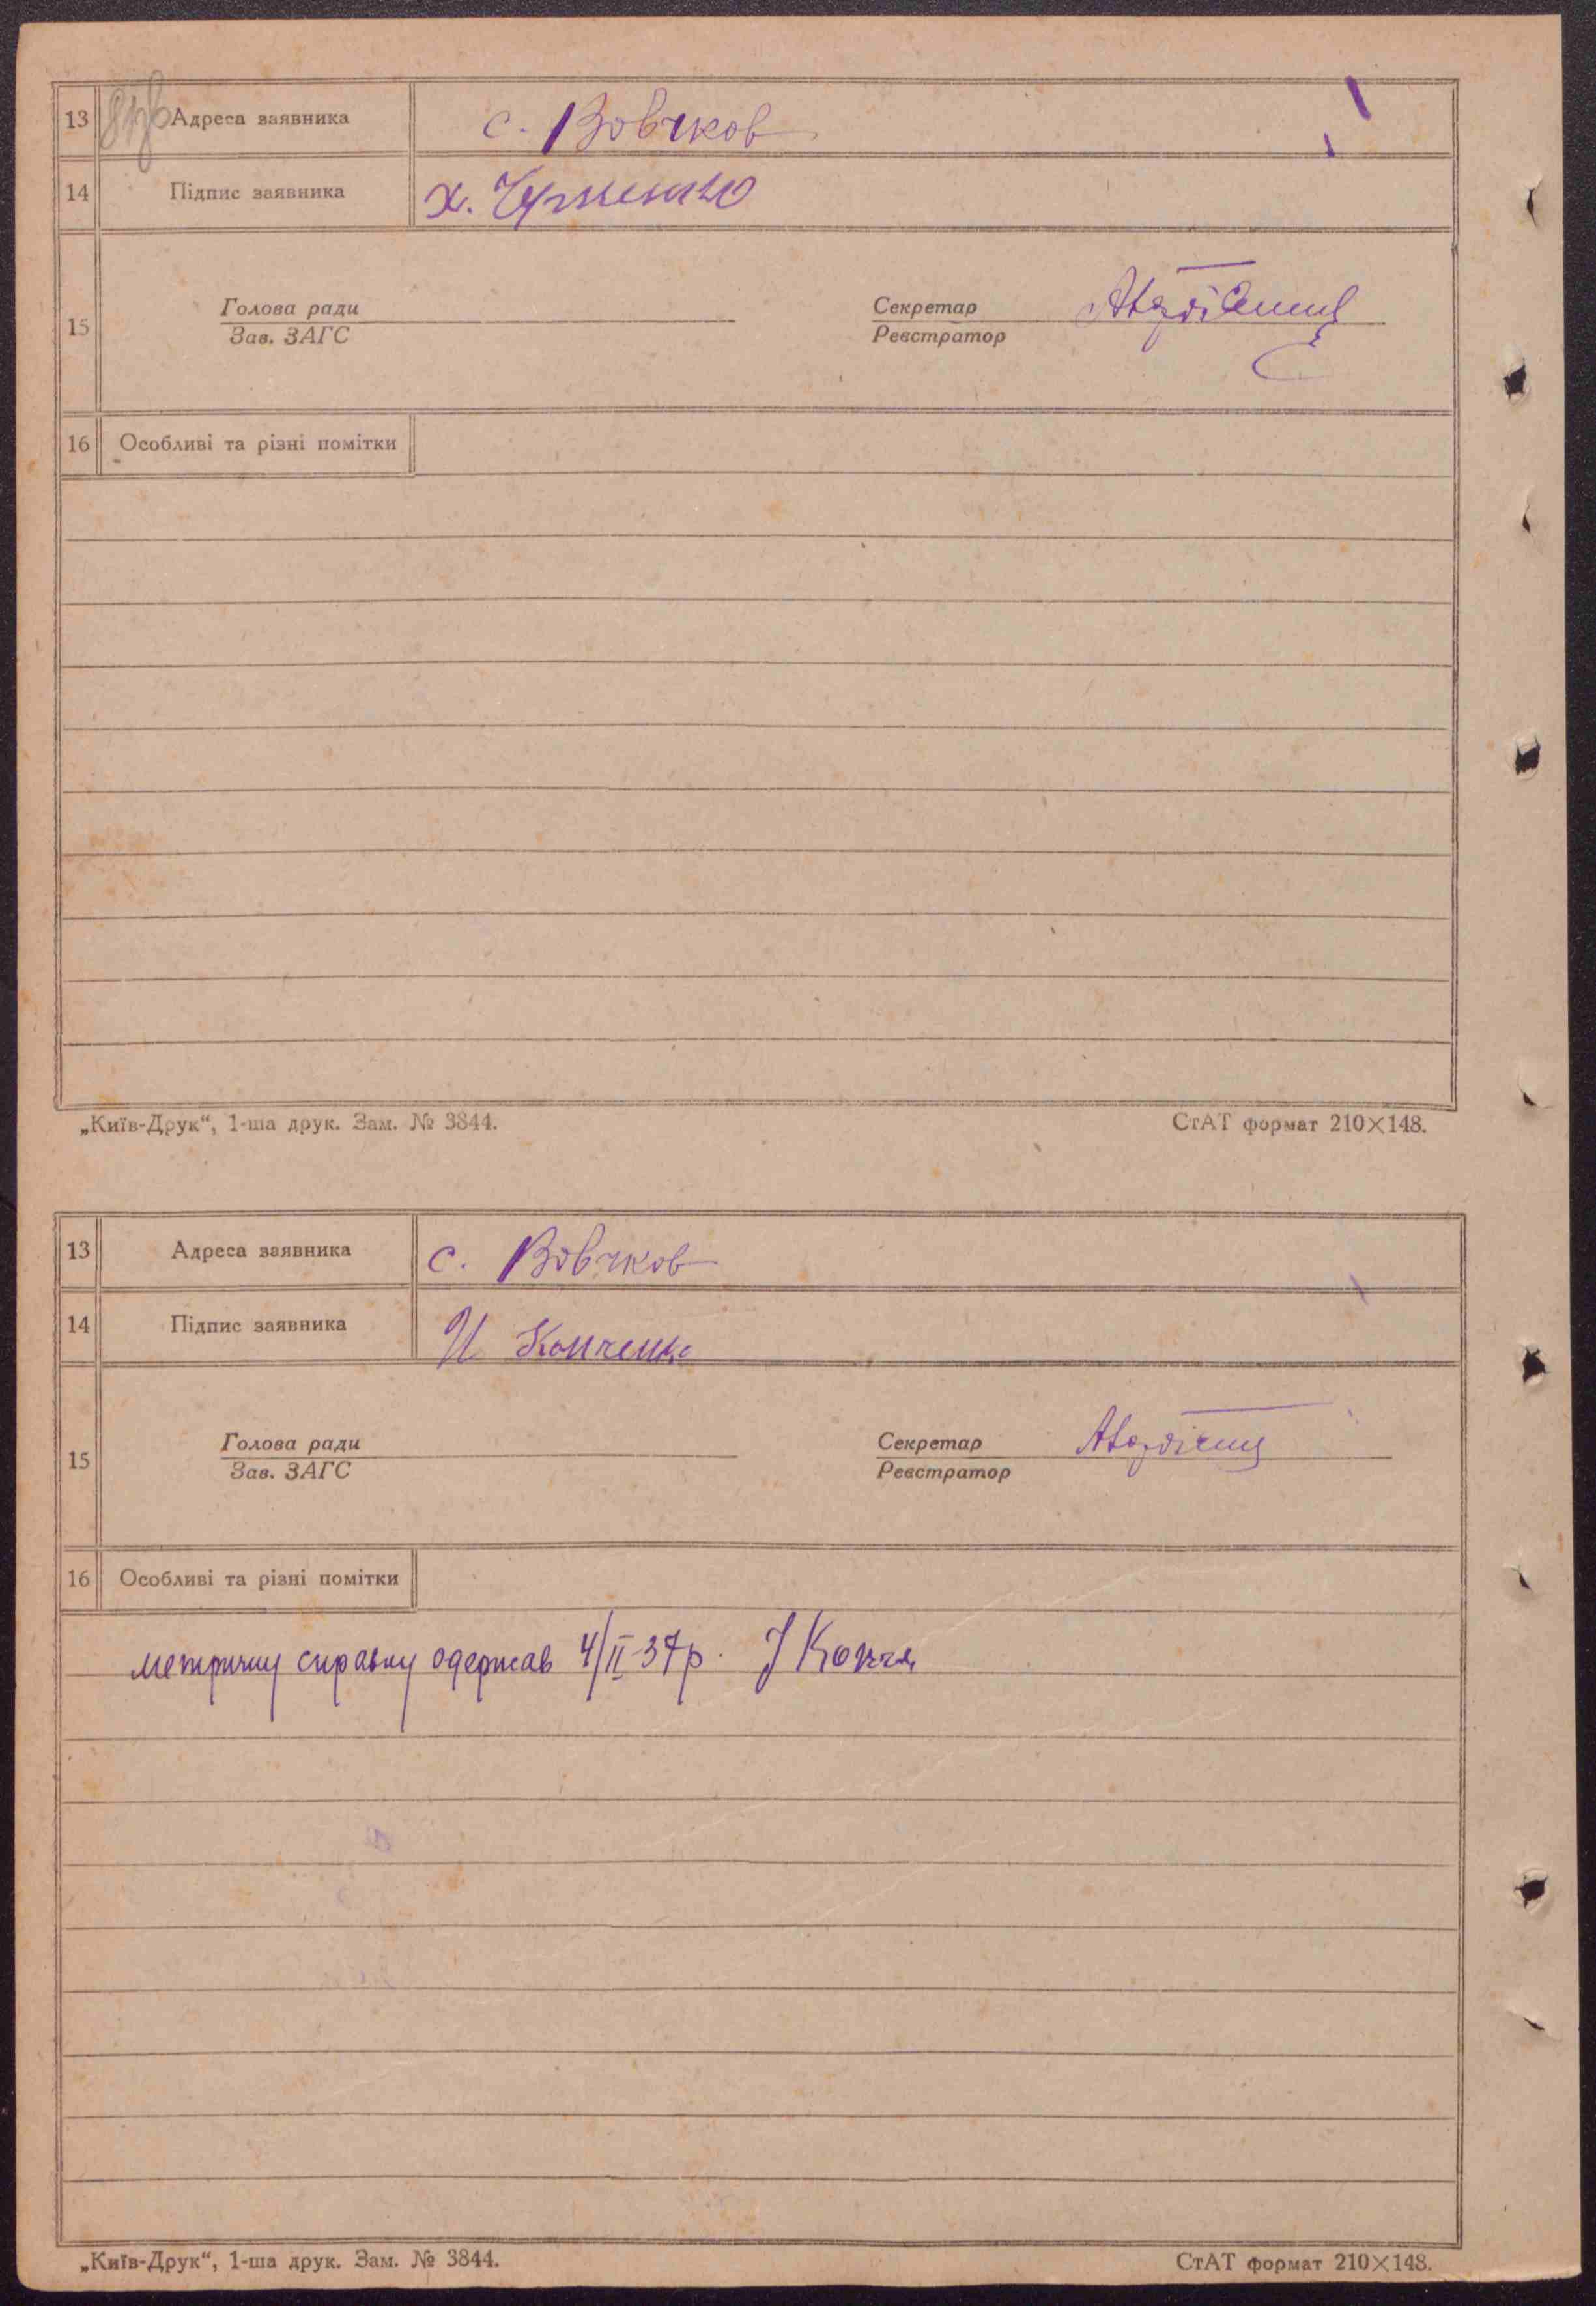 13 Адреса заявника с. Вовчков
14 Підпис заявника Х.
15 Голова ради Секретар
Зав. ЗАГС Реєстратор
16 Особливі та різні помітки
„Київ-Друк“, 1-ша друк. Зам. № 3844. СтАТ формат 210×148.
13 Адреса заявника с. Вовчков
14 Підпис заявника И Копченко
15 Голова ради Секретар
Зав. ЗАГС Реєстратор
16 Особливі та різні помітки
метричну справку одержав 4/II-37р.
„Київ-Друк“, 1-ша друк. Зам. № 3844. СтАТ формат 210×148.